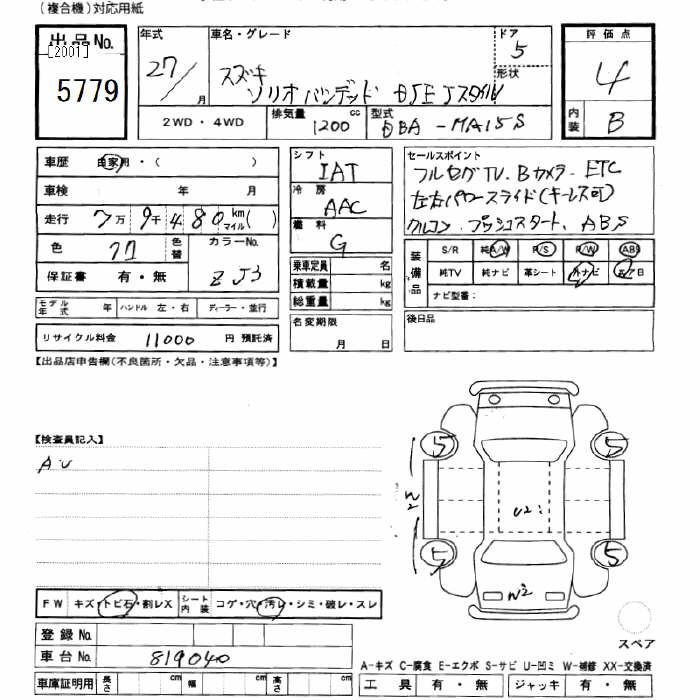 (複合機)対応用紙
出品No.
[2001]
5779
年式
27/
月
車名・グレード
スズキ
ソリオバンデッド
ドア
5
形状
2WD・4WD
排気量
1200
cc
型式
DBA-MA15S
評価点
4
内装
B
車歴 自家用・( )
車検 年 月
走行 7万 9千480 km マイル( )
色
色替
カラーNo.
ZJ3
保証書 有・無
モデル年式 年 ハンドル 左・右 ディーラー・並行
リサイクル料金 11000 円 預託済
シフト
IAT
冷房
AAC
燃料
G
乗車定員 名
積載量 kg
総重量 kg
名変期限
月 日
セールスポイント
フルセグTV. Bカメラ. ETC
左右パワースライド(キーレス可)
クルコン. プッシュスタート、ABS
装備品
S/R 純A/W P/S P/W ABS
純TV 純ナビ 革シート 外ナビ
ナビ型番:
後日品
【出品店申告欄(不良箇所・欠品・注意事項等)】
【検査員記入】
AU
5
5
W2
U2
5
5
W2
スペア
FW キズ・トビ石・割レX
シート内装 コゲ・穴・汚レ・シミ・破レ・スレ
登録No.
車台No. 819040
車庫証明用 長さ cm 幅 cm 高さ cm
A-キズ C-腐食 E-エクボ S-サビ U-凹ミ W-補修 XX-交換済
工具 有・無 ジャッキ 有・無